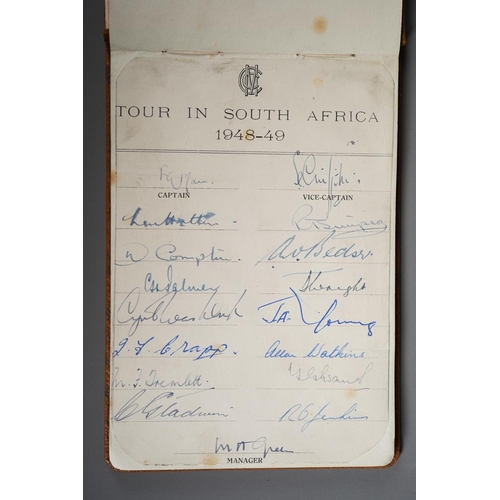 MCC
TOUR IN SOUTH AFRICA
1948-49
F G Mann S C Griffith
CAPTAIN VICE-CAPTAIN
Len Hutton R T Simpson
D Compton A V Bedser
C H Palmer D Wright
Cyril Washbrook J A Young
J. F. Crapp. Allan Watkins
M. F. Tremlett
C Gladwin R O Jenkins
M A Green
MANAGER